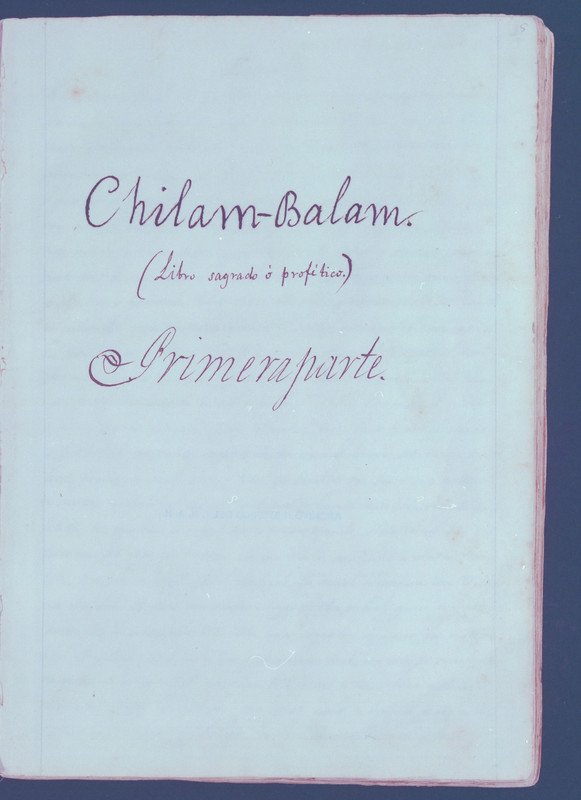 Chilam-Balam.
(Libro sagrado ó profético.)
Primera parte.